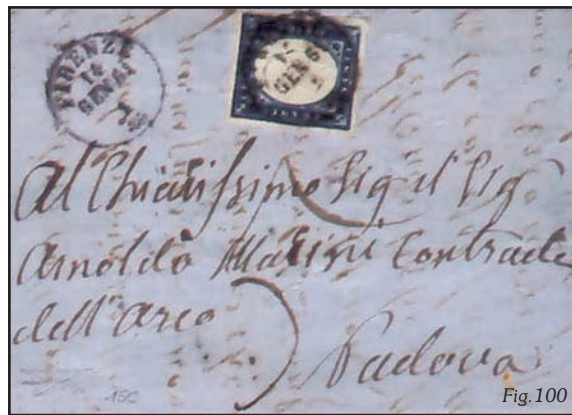 FIRENZE
GEN
Al Chiarissimo Sig il Sig
Arnoldo Marini Contrada
dell' Arco
Padova
Fig.100